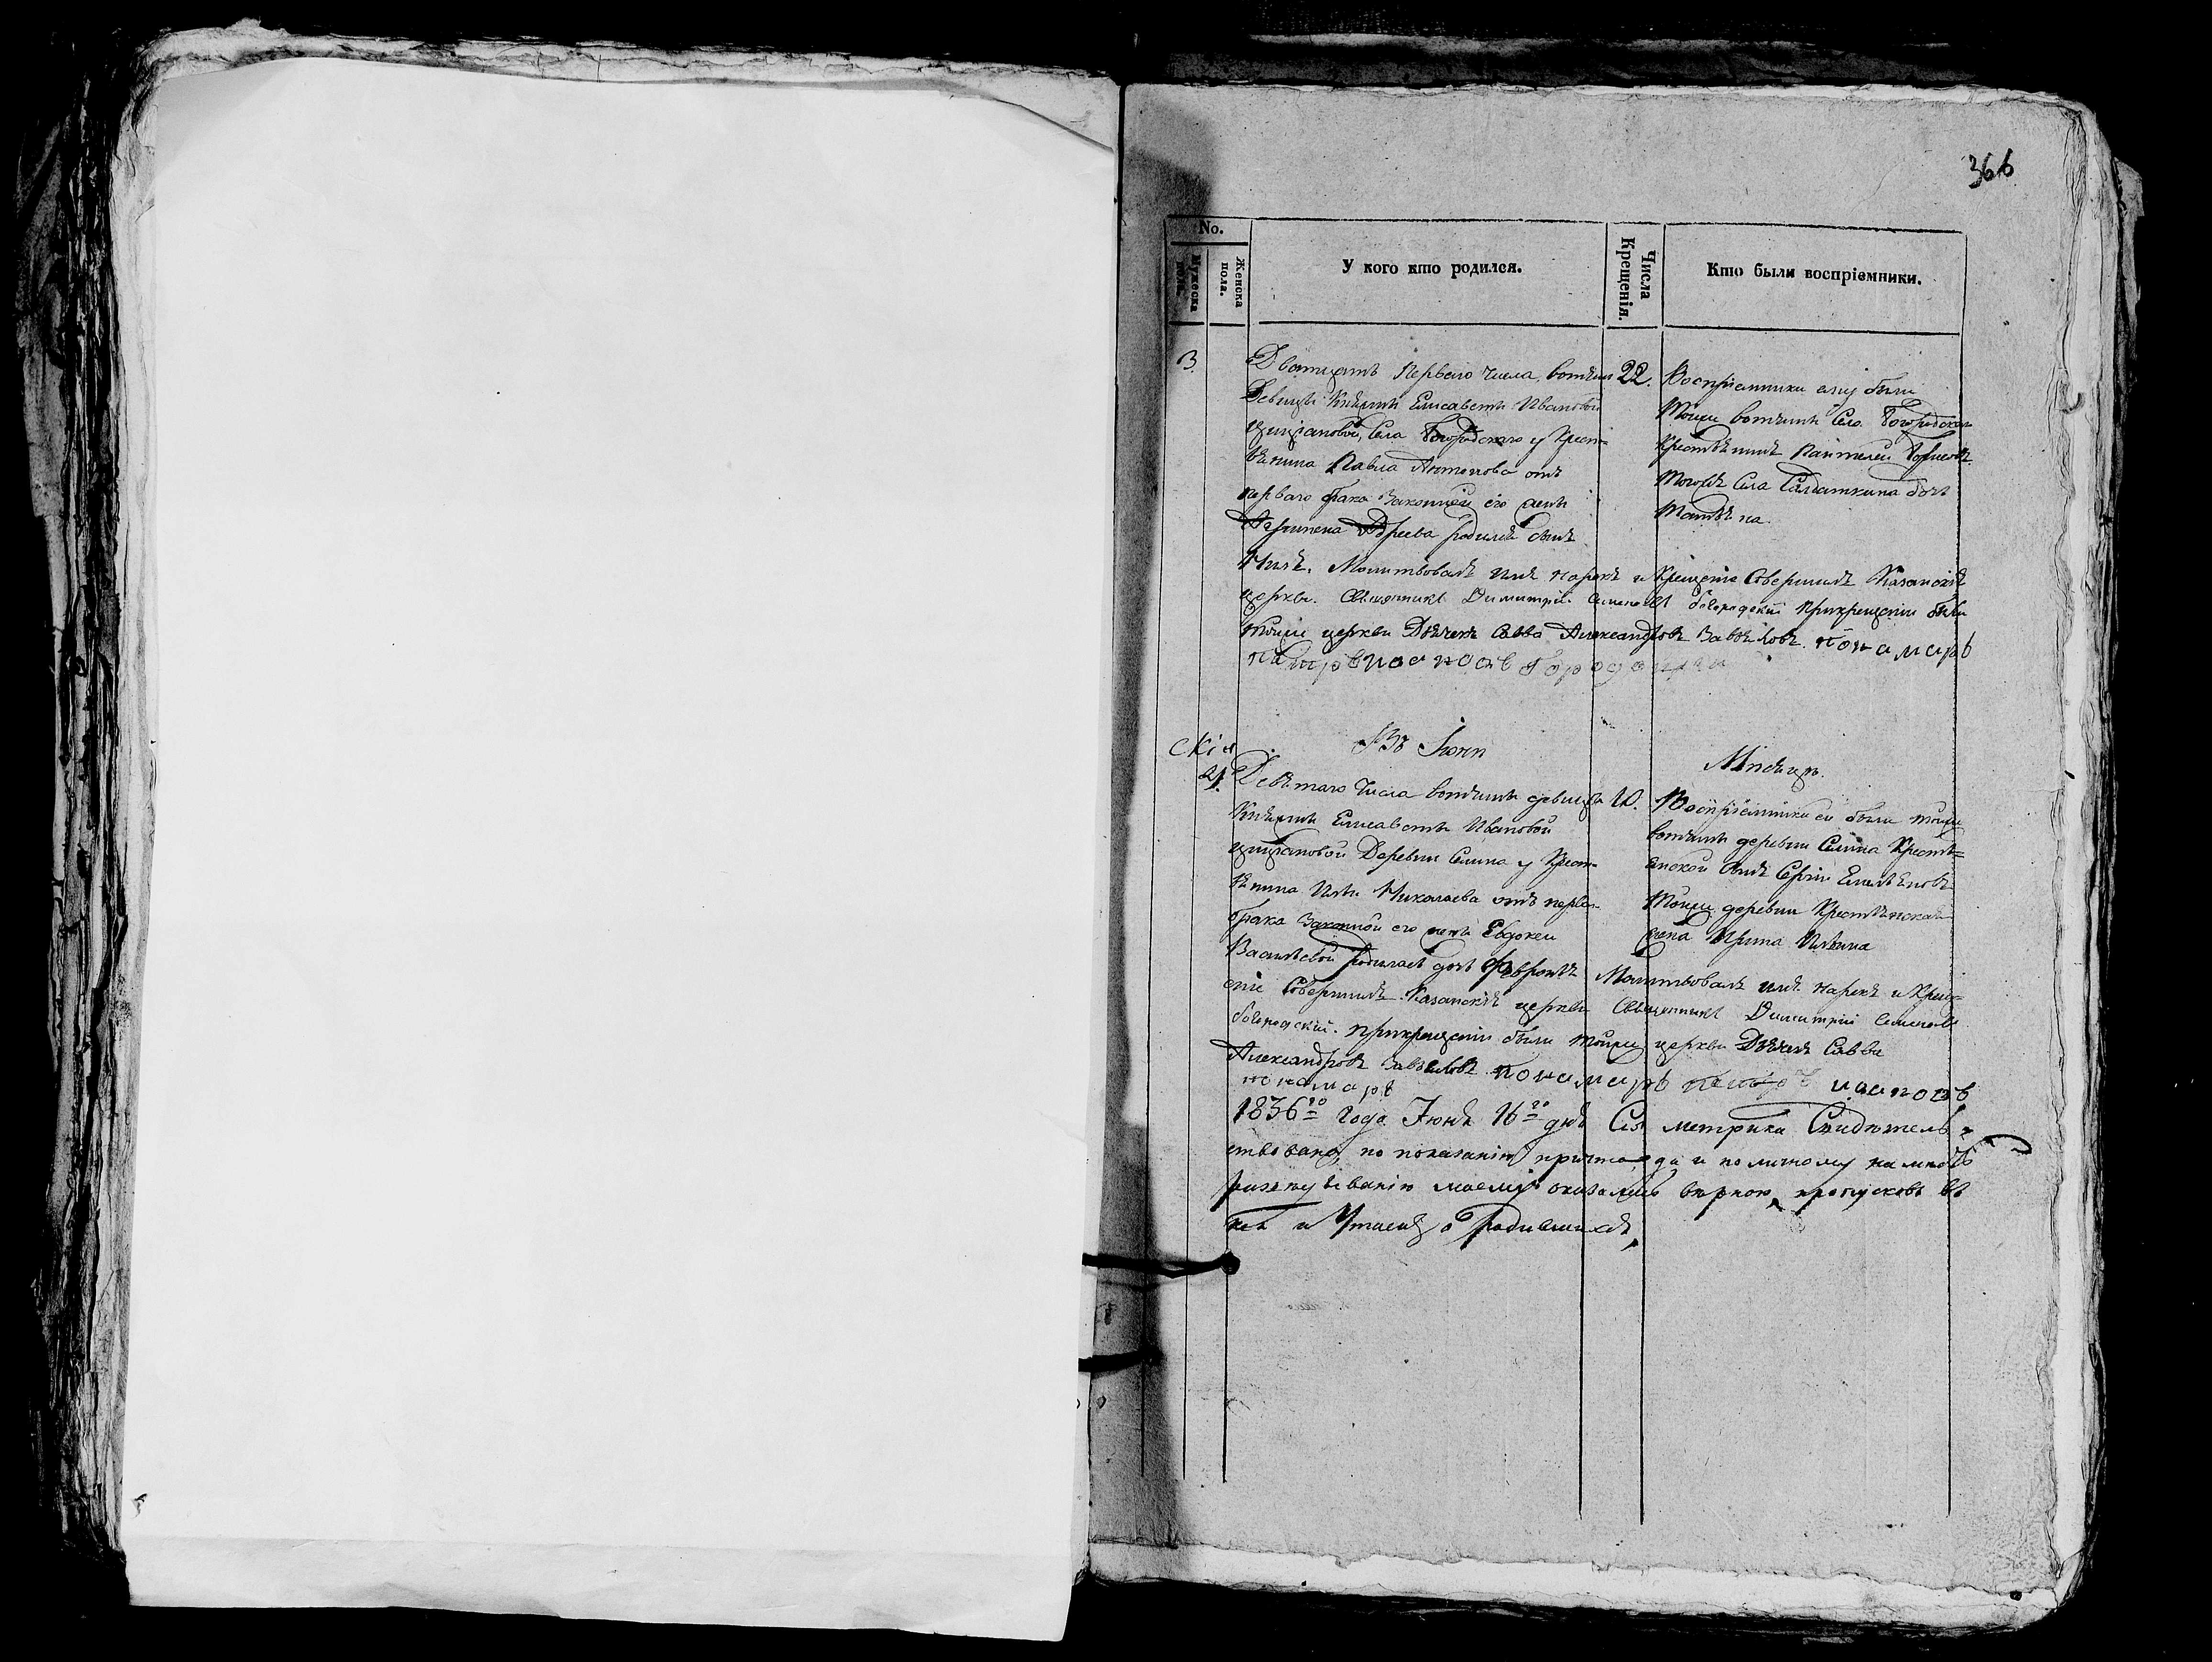 366
No.
Мужеска пола.
Женска пола.
У кого кто родился.
Числа Крещенія.
Кто были воспріемники.
3
Дватцать Перваго числа, вотчины
Девицы Княжны Елисаветы Ивановой
Цициановой, Села Богородскаго у Крест-
янина Павла Антонова отъ
перваго брака Законной его жены
родился сынъ
22.
Воспріемники ему были
тойже вотчины Села Богородскаго
Крестьянинъ Пантелей
тогожъ Села Салдаткина дочь
Молитвовалъ имя нарекъ и Крещеніе Совершилъ Казанскія
церкви. Священникъ Димитрій Семеновъ богородскій прикрещеніи были
тойже церкви Дьячекъ Савва Александровъ пономарь
Въ Іюни
Мѣсяцѣ.
Девятаго числа вотчины девицы
Княжны Елисаветы Ивановой
Цициановой Деревни Селина у Крест-
янина Ильи Николаева отъ перва-
брака Законной его жены Евдокеи
Васильевой родилась дочь Февронья
10.
Воспріемники ей были тойже
вотчины деревни Селина Кресть=
янской сынъ Сергѣй Емельяновъ
тойже деревни Крестьянская
жена Ирина Ильина
Молитвовалъ имя нарекъ и Крещ=
еніе Совершилъ Казанскія церкви Священникъ Димитрій Семеновъ
богородскій. прикрещеніи были тойже церкви Дьячекъ Савва
Александровъ пономарь
пономарь
1836го года Іюня 16го дня Сія метрика Свидѣтель=
ствована, по показанію причта да и по личному на мѣстѣ
развѣдыванію моему оказалась вѣрною, пропусковъ въ
ней и Утаекъ о Родившихся